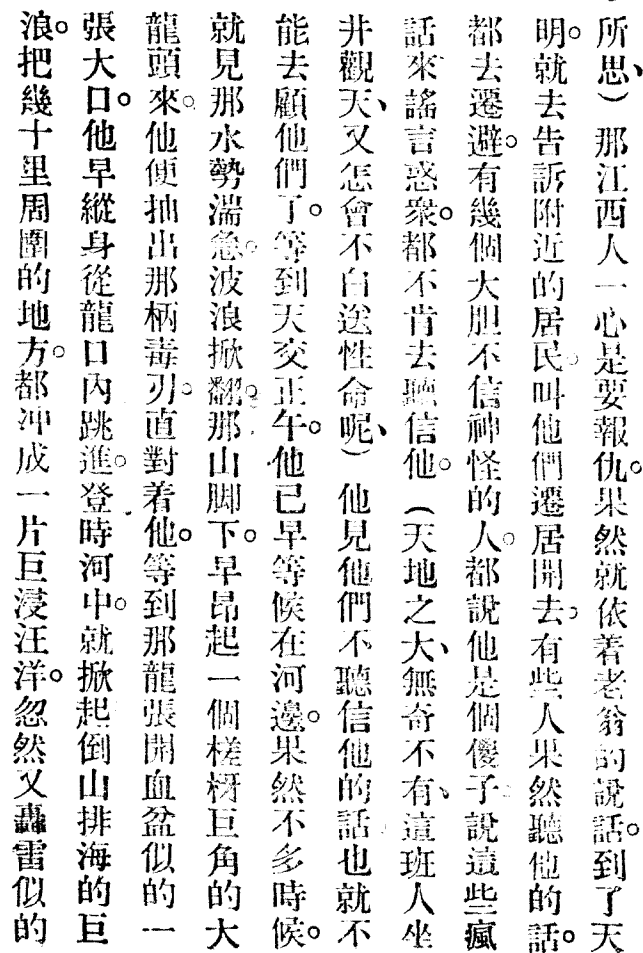 所思、）那江西人一心是要報仇。果然就依着老翁的說話。到了天
明。就去告訴附近的居民。叫他們遷居開去。有些人果然聽他的話。
都去遷避。有幾個大胆不信神怪的人。都說他是個傻子。說這些瘋
話來謠言惑衆。都不肯去聽信他。（天地之大、無奇不有、這班人坐
井觀天、又怎會不白送性命呢、）他見他們不聽信他的話。也就不
能去顧他們了。等到天交正午。他已早等候在河邊。果然不多時候。
就見那水勢湍急。波浪掀翻。那山脚下。早昂起一個槎枒巨角的大
龍頭來。他便抽出那柄毒刃。直對着他。等到那龍張開血盆似的一
張大口。他早縱身從龍口內跳進。登時河中。就掀起倒山排海的巨
浪。把幾十里周圍的地方。都冲成一片巨浸汪洋。忽然又轟雷似的